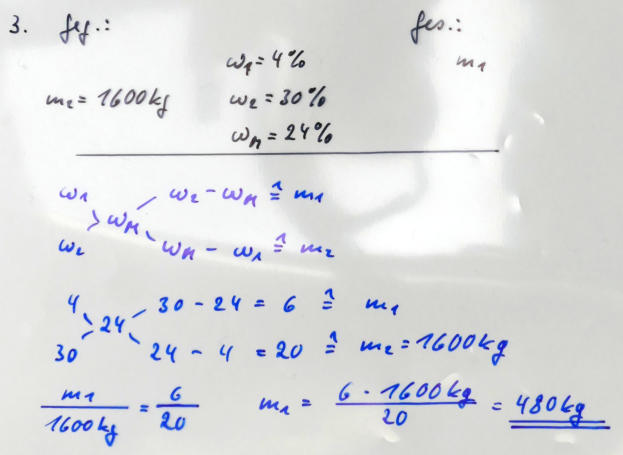 3. geg.: ges.:
ω₁ = 4% m₁
m₂ = 1600kg ω₂ = 30%
ω_M = 24%
ω₁ ω₂ - ω_M ≙ m₁
> ω_M
ω₂ ω_M - ω₁ ≙ m₂
4 30 - 24 = 6 ≙ m₁
24
30 24 - 4 = 20 ≙ m₂ = 1600kg
m₁/1600kg = 6/20 m₁ = 6 · 1600kg/20 = 480kg